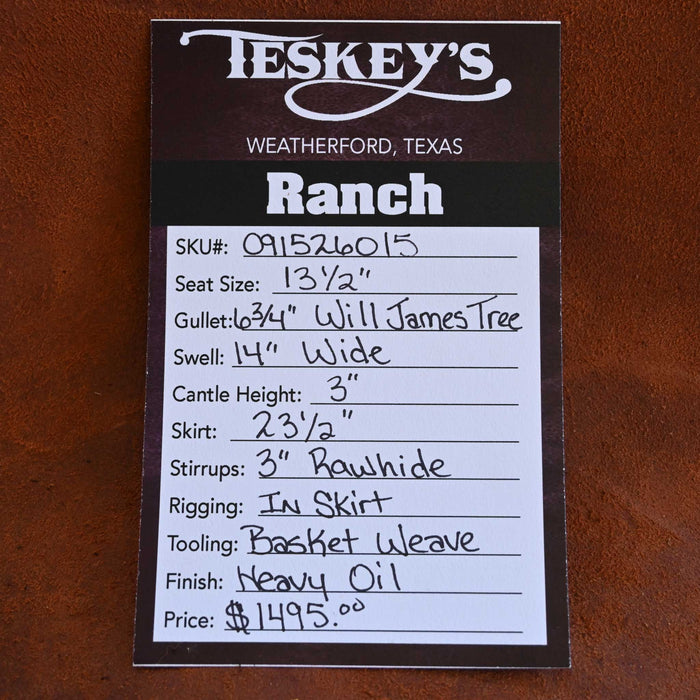 TESKEY'S
WEATHERFORD, TEXAS
Ranch
SKU#: 091526015
Seat Size: 13 1/2"
Gullet: 6 3/4" Will James Tree
Swell: 14" Wide
Cantle Height: 3"
Skirt: 23 1/2"
Stirrups: 3" Rawhide
Rigging: In Skirt
Tooling: Basket Weave
Finish: Heavy Oil
Price: $1495.00